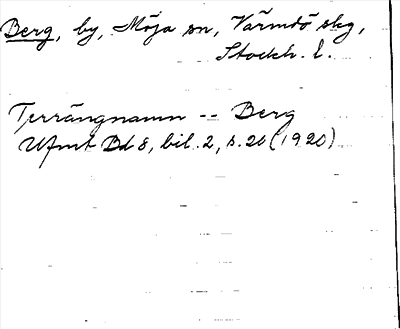 Berg, by, Möja sn, Värmdö skg,
Stockh. l.
Terrängnamn -- Berg
Ufmt Bd 8, bil. 2, s. 20 (1920)